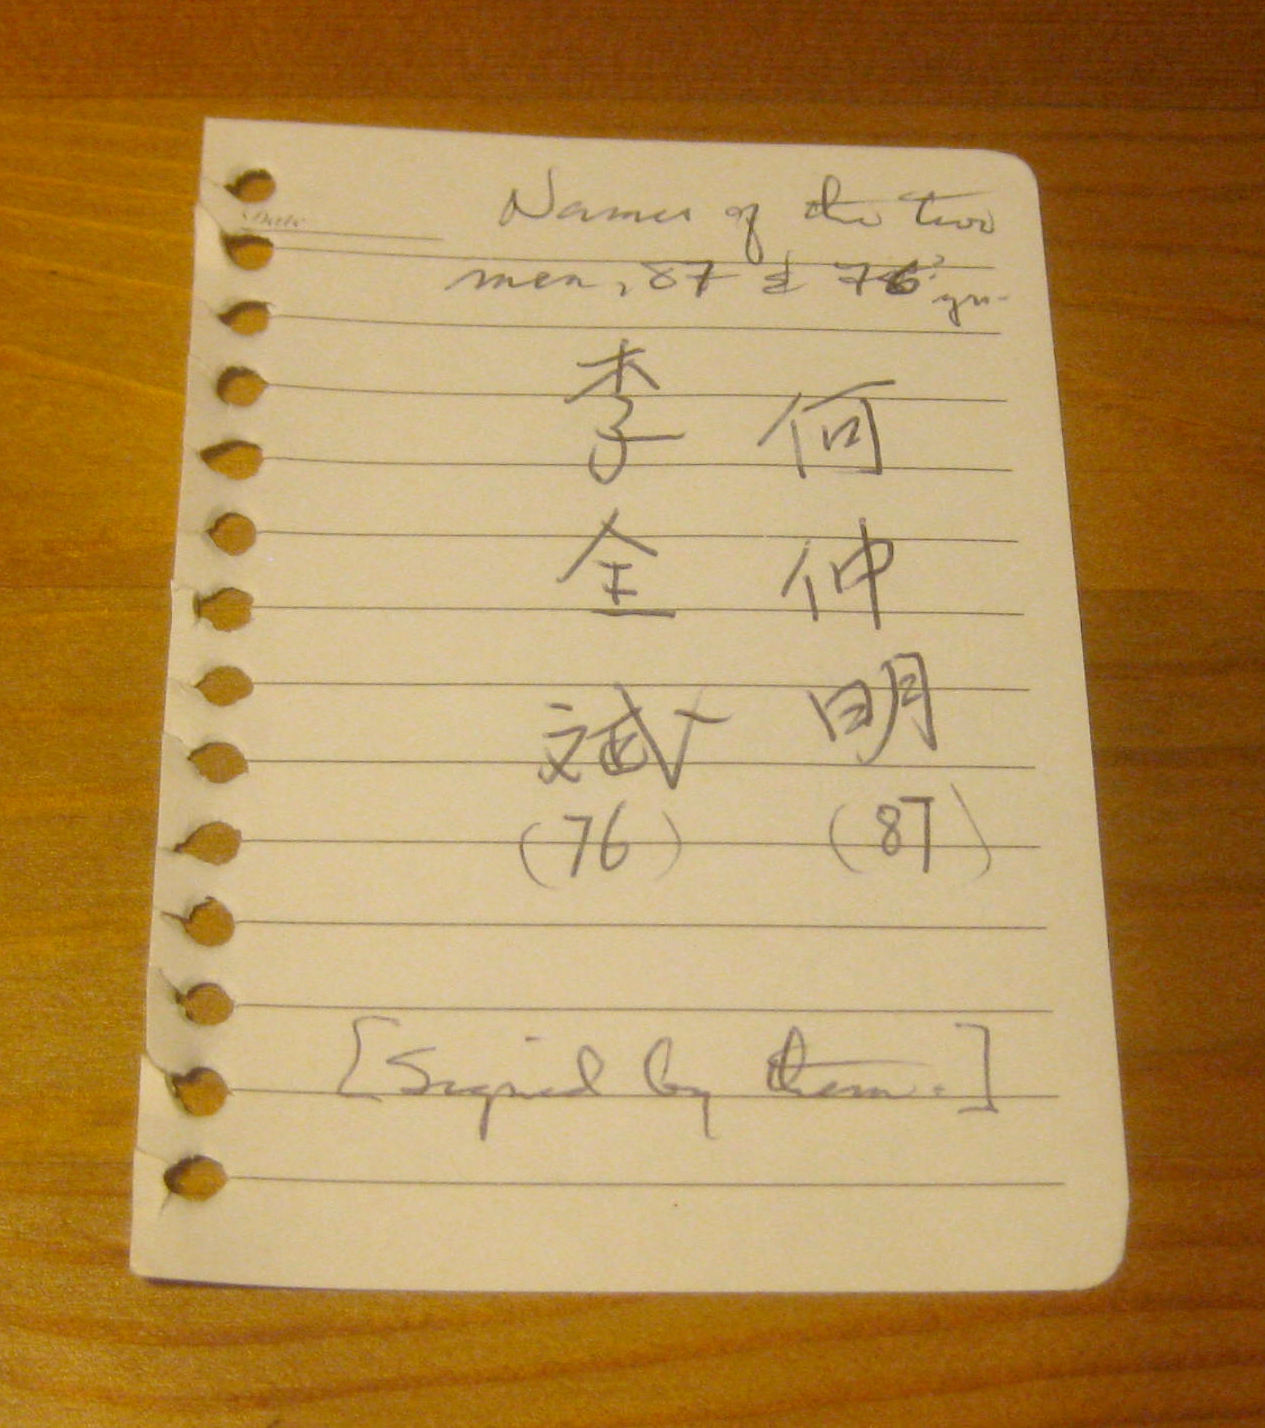 Date
Names of the two
men, 87 & 76 yrs.
何仲明
(87)
李全斌
(76)
[Signed by them.]